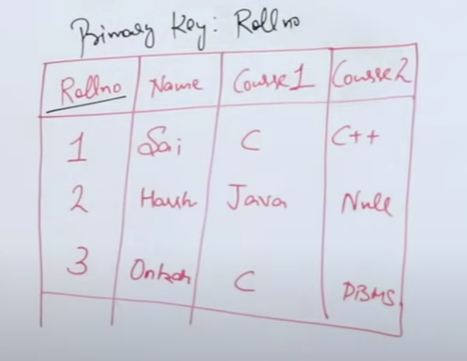 Primary Key: Rollno
Rollno Name Course1 Course2
1 Sai C C++
2 Harsh Java Null
3 Onkar C DBMS